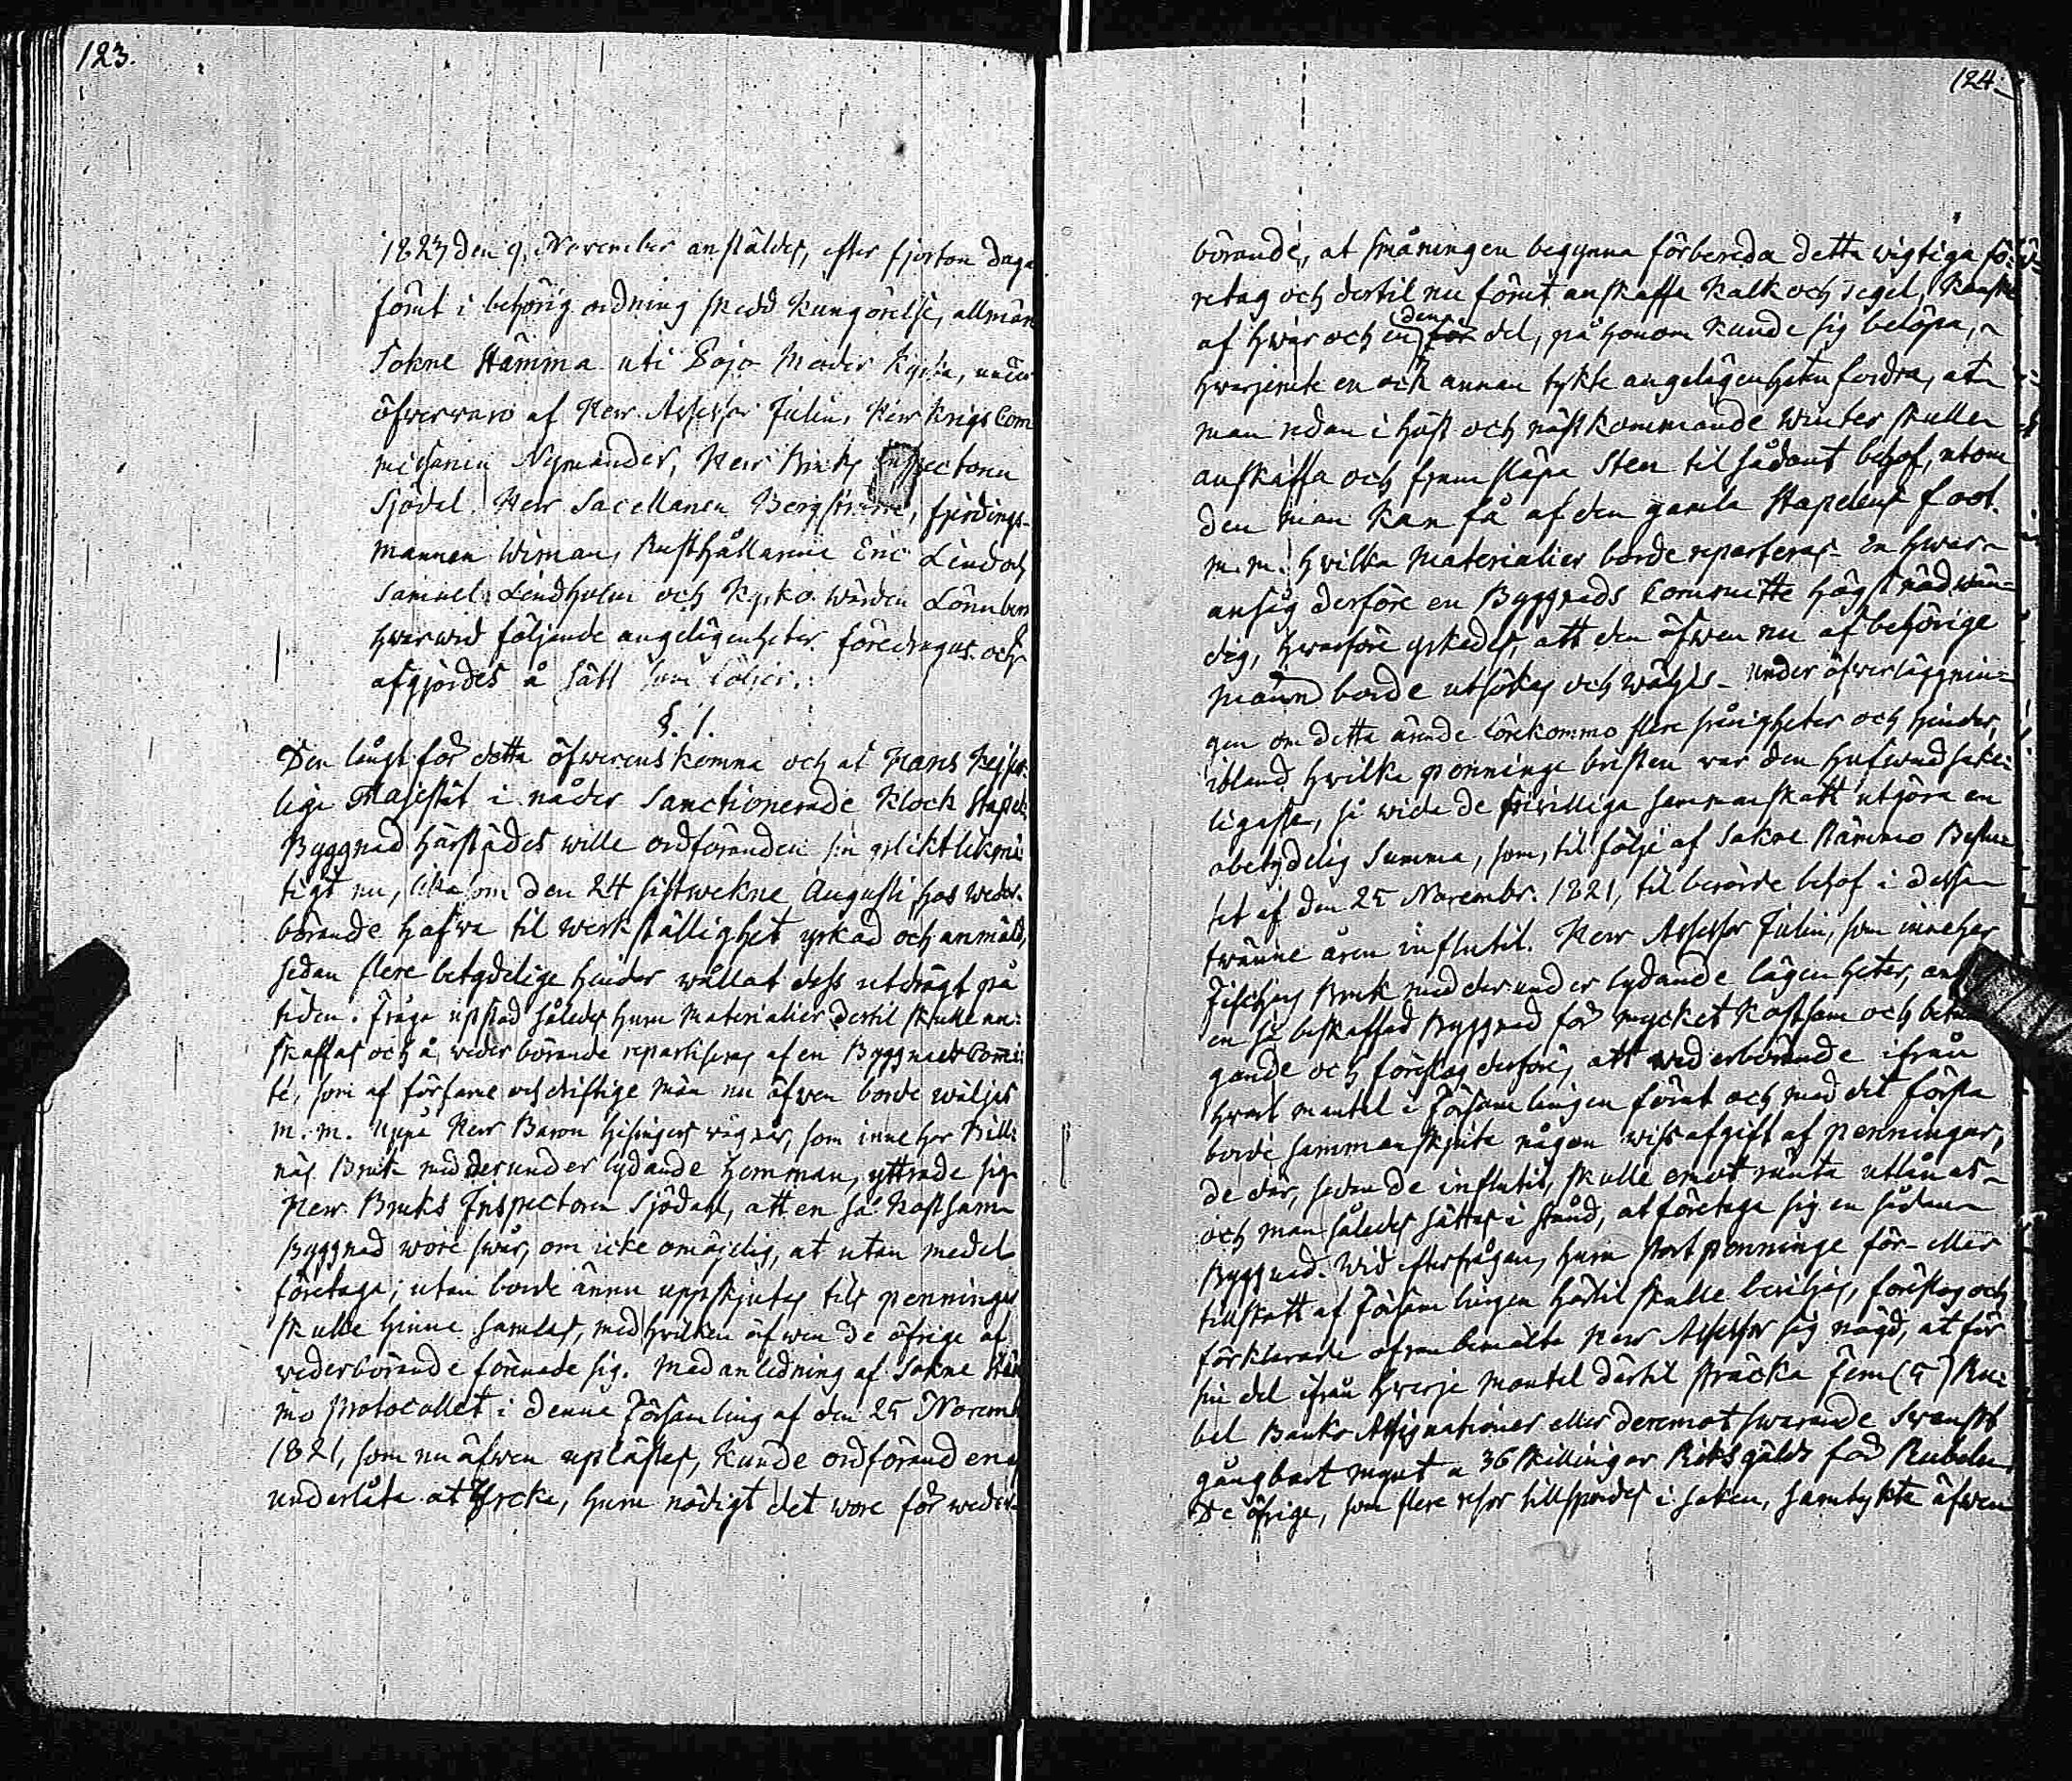 123.
1823 den 9. November anstäldes, efter fjorton daga
förut i behörig ordning skedd kungörelse, allmän
Sokne Stämma uti Pojo Moder Kyrka, under
öfwerwaro af Herr Assessor Julin, Herr Krigs Com
missarien Nymander, Herr Bruks Inspectoren
Sjödal, Herr Sacellanen Bergström, fjerdings-
mannen Wiman, Rusthållarne Eric Lind och
Samuel Lindholm och Kyrko wärden Lönnberg
hwarwid följande angelägenheter föredrogos och
afgjordes å sätt som följer.
§. 1.
Den långt för detta öfwerenskomna och af Hans Kejser-
lige Majestät i nåder Sanctionerade Klock Stapel
Byggnad härstädes wille ordföranden sin plikt likmä-
tigt nu, likasom den 24 sistwekne Augusti, hos weder-
börande hafwa til werkställighet yrkad och anmäld,
sedan flere betydelige hinder wållat dess utdrägt på
tiden. Fråga uppstod således huru Materialier dertil skulle an-
skaffas och å wederbörande repartiseras af en Byggnads Comi-
té, som af förfarne och driftige män nu äfwen borde wäljas
m. m. Uppå Herr Baron Hisingers wägnar, som innehar Bill-
näs Bruk med derunder lydande hemman, yttrade sig
Herr Bruks Inspectoren Sjödahl, att en så kostsam
Byggnad wore swår, om icke omöjelig, at utan medel
företaga; utan borde ännu uppskjutas tils penningar
skulle hinna samlas, med hwilken äfwen de öfrige af
wederbörande förenade sig. Med anledning af Sokne Stäm
mo Protocollet i denne Församling af den 25 Novemb
1821, som nu äfwen uplästes, kunde ordföranden ej
underlåta at Yrcka, huru nödigt det wore för weder-
124.
börande, at småningen begynna förbereda detta wigtiga fö-
retag och dertil nu förut anskaffa Kalk och tegel, Kanske
af hwar och en för den del, på honom kunde sig belöpa,
hwarjemte en och annan tykte angelägenheten fordra, at
man redan i höst och nästkommande winter skulle
anskaffa och framsläpa Sten til sådant behof, utom
den man kan få af den gamla Stapelens foot.
m. m. hwilka Materialier borde reparteras. En hwar
ansåg derföre en Byggnads Committe högst nödwän-
dig, hwarföre yrkades, att den äfwen nu af behörige
männ borde utsökas och wäljas. Under öfwerläggnin-
gen om detta ärende förekommo flere swårigheter och hinder,
ibland hwilka penninge bristen war den hufwudsake-
ligaste, så wida de friwilliga sammanskatt utgöra en
obetydelig Summa, som, til följe af Sokne stämmo Beslu-
tet af den 25 Novembr. 1821, til berörde behof i dessa
twänne åren influtit. Herr Assessor Julin, som innehar
Fiskars Bruk med derunder lydande lägenheter, ansåg
en så beskaffad Byggnad för mycket kostsam och betun
gande och föreslog derföre, att wederbörande ifrån
hwart mantel i Församlingen förut och med det första
borde sammanskjuta någon wiss afgift af penningar,
de der, sedan de influtit, skulle emot ränta utlånas
och man således sättas i stånd, at företaga sig en sådan
Byggnad. Wid efterfrågan, huru stort penninge för- eller
tillskott af Församlingen härtil skulle bewiljas, föreslog och
förklarade ofwanbemälte Herr Assessor sig nögd, at för
sin del ifrån hwarje Mantel därtil sträcka fem (5) Ru-
bel Banko Assignationer eller deremot swarande Swenskt
gångbart mynt a 36 skillingar Riksgälds för Rubeln
De öfrige, som flere resor tillspordes i saken, samtykte äfwen